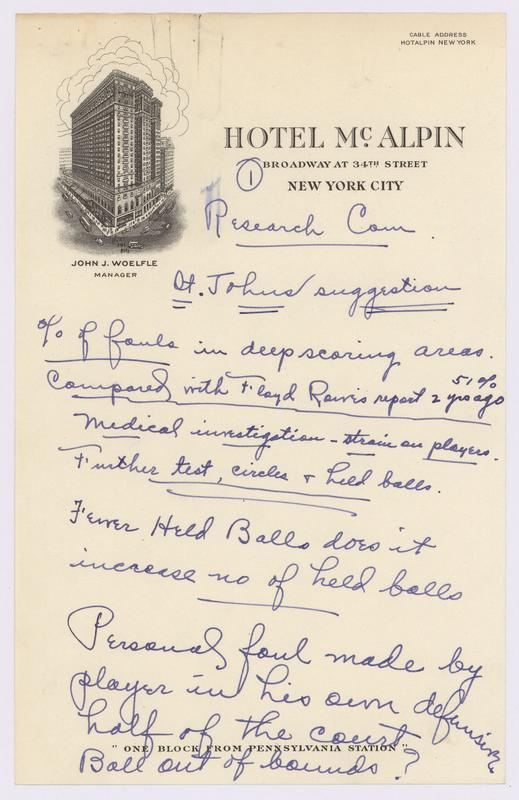 CABLE ADDRESS
HOTALPIN NEW YORK
HOTEL McALPIN
BROADWAY AT 34TH STREET
NEW YORK CITY
JOHN J. WOELFLE
MANAGER
1
Research Com.
St. Johns suggestion
% of fouls in deep scoring areas.
51%
Compared with Floyd Rowes report 2 yrs ago
Medical investigation - strain on players.
Further test, circles & held balls.
Fewer Held Balls does it
increase no of held balls
Personal foul made by
player in his own defensive
half of the court
" ONE BLOCK FROM PENNSYLVANIA STATION "
Ball out of bounds?